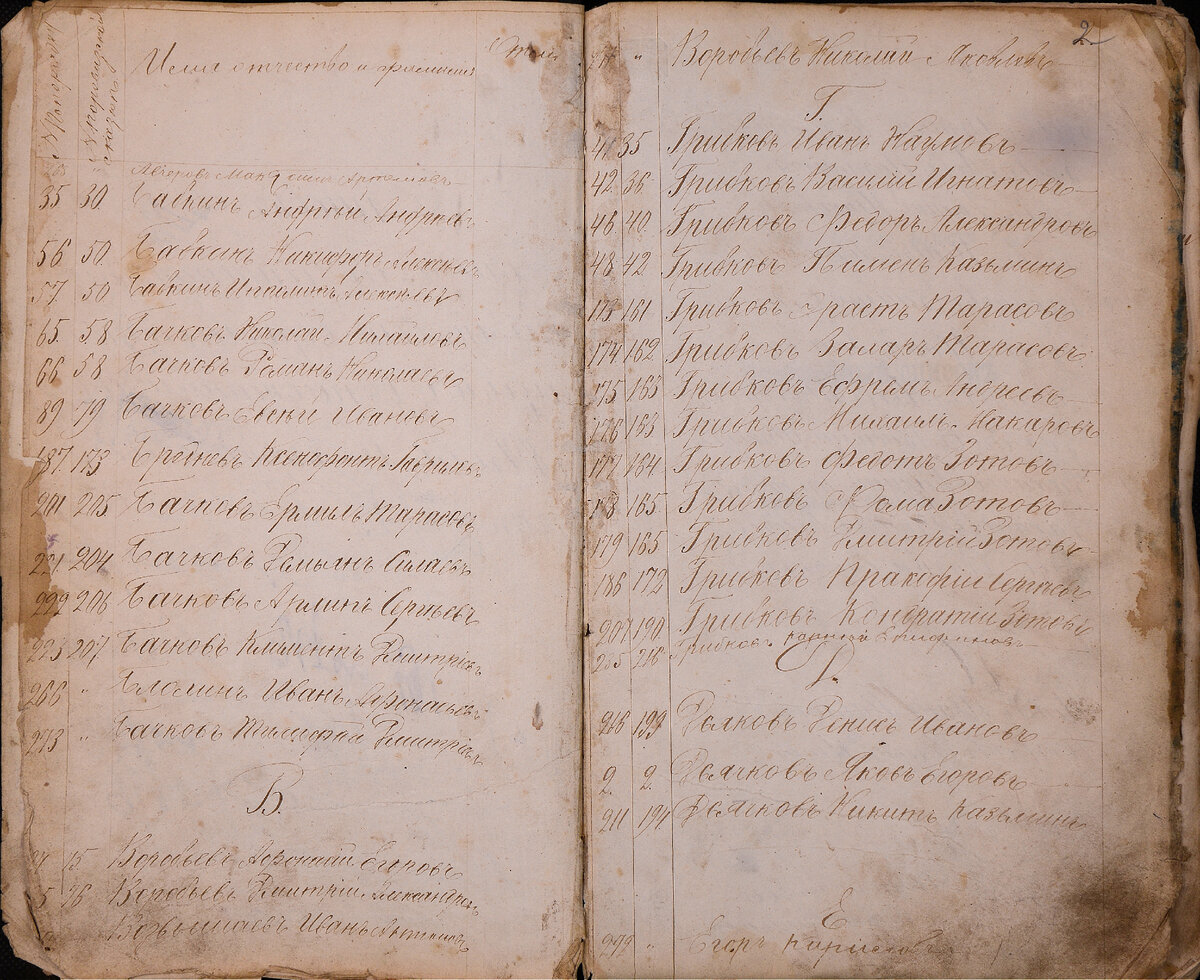 Имя отчество и фамилия
35 30 Бабкинъ Андрей Андреевъ
56 50 Бабкинъ Никифоръ Алексѣевъ
57 50 Бабкинъ Алексѣевъ
65 58 Бачковъ Николай Михайловъ
66 58 Бачковъ Романъ Николаевъ
89 79 Бачковъ Евсѣй Ивановъ
187 173 Ксенофонтъ
201 205 Бачковъ Ермилъ Тарасовъ
221 204 Бачковъ Демьянъ Силаевъ
222 206 Бачковъ Сергѣевъ
223 207 Бачковъ Климентъ Дмитріевъ
266 " Иванъ Афонасьевъ
273 " Бачковъ Тимофей Дмитріевъ
В.
15 Воробьевъ Афонасій Егоровъ
5 Воробьевъ Дмитрій Александровъ
Иванъ
2.
" Воробьевъ Николай Яковлевъ
Г.
41 35 Грибковъ Иванъ Наумовъ
42 36 Грибковъ Василій Игнатовъ
46 40 Грибковъ Федоръ Александровъ
48 42 Грибковъ Пименъ Казьминъ
173 161 Грибковъ Эрастъ Тарасовъ
174 162 Грибковъ Захаръ Тарасовъ
175 163 Грибковъ Ефремъ Андреевъ
176 163 Грибковъ Михаилъ Макаровъ
177 164 Грибковъ Федотъ Зотовъ
178 165 Грибковъ Фома Зотовъ
179 165 Грибковъ Дмитрій Зотовъ
186 172 Грибковъ Пракофій Сергѣевъ
207 190 Грибковъ Кондратій Зотовъ
216 Грибковъ
Д.
199 Денисъ Ивановъ
2. 2. Дьячковъ Яковъ Егоровъ
211 194 Дьячковъ Никита Казьминъ
Е
272 " Егоръ